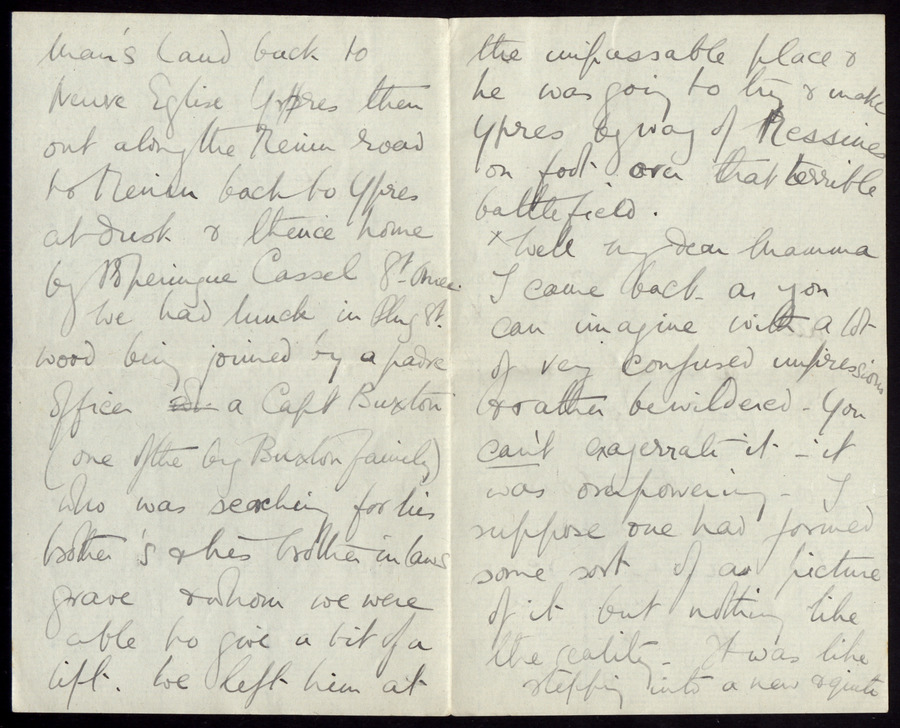 Man's Land back to
Neuve Eglise Ypres then
out along the Menin road
to Menin back to Ypres
at dusk & thence home
by Poperingue Cassel St. Omer.
We had lunch in Plug St.
wood being joined by a padre
Officer a Capt Buxton
(one of the big Buxton family)
who was searching for his
brother's & his brother in laws
grave & whom we were
able to give a bit of a
lift. We left him at
the impassable place &
he was going to try & make
Ypres by way of Messines
on foot over that terrible
battlefield.
x Well my dear Mamma
I came back as you
can imagine with a lot
of very confused impressions
& rather bewildered - You
can't exagerrate it - it
was overpowering - I
suppose one had formed
some sort of a picture
of it but nothing like
the reality - It was like
stepping into a new & quite